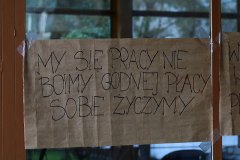 MY SIĘ PRACY NIE
BOIMY GODNEJ PŁACY
SOBIE ŻYCZYMY